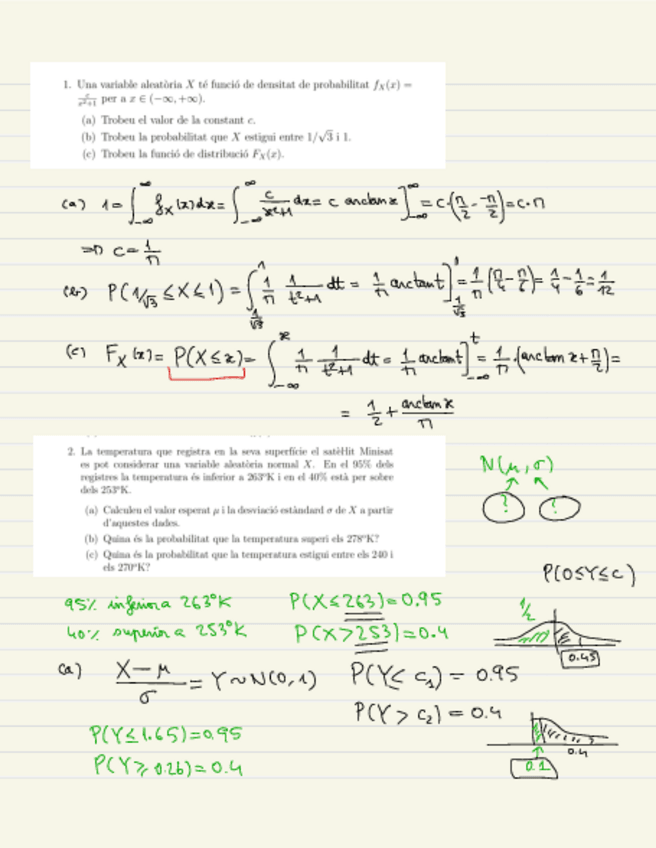 1. Una variable aleatòria X té funció de densitat de probabilitat f_X(x) =
c/(x²+1) per a x ∈ (−∞, +∞).
(a) Trobeu el valor de la constant c.
(b) Trobeu la probabilitat que X estigui entre 1/√3 i 1.
(c) Trobeu la funció de distribució F_X(x).
(a) 1 = ∫_{-∞}^{∞} f_X(x)dx = ∫_{-∞}^{∞} c/(x²+1) dx = c arctan x ]_{-∞}^{∞} = c·(π/2 - -π/2) = c·π
⇒ c = 1/π
(b) P(1/√3 ≤ X ≤ 1) = ∫_{1/√3}^{1} 1/π 1/(t²+1) dt = 1/π arctan t ]_{1/√3}^{1} = 1/π (π/4 - π/6) = 1/4 - 1/6 = 1/12
(c) F_X(x) = P(X ≤ x) = ∫_{-∞}^{x} 1/π 1/(t²+1) dt = 1/π arctan t ]_{-∞}^{t} = 1/π·(arctan x + π/2) =
= 1/2 + arctan x/π
2. La temperatura que registra en la seva superfície el satèl·lit Minisat
es pot considerar una variable aleatòria normal X. En el 95% dels
registres la temperatura és inferior a 263°K i en el 40% està per sobre
dels 253°K.
(a) Calculeu el valor esperat μ i la desviació estàndard σ de X a partir
d'aquestes dades.
(b) Quina és la probabilitat que la temperatura superi els 278°K?
(c) Quina és la probabilitat que la temperatura estigui entre els 240 i
els 270°K?
N(μ, σ)
? ?
P(0≤Y≤c)
95% inferior a 263°K P(X≤263)=0.95
1/2
40% superior a 253°K P(X>253)=0.4
0.45
(a) (X-μ)/σ = Y ~ N(0,1) P(Y≤ c₁) = 0.95
P(Y > c₂) = 0.4
P(Y≤1.65)=0.95
0.4
P(Y≥0.26)=0.4
0.1